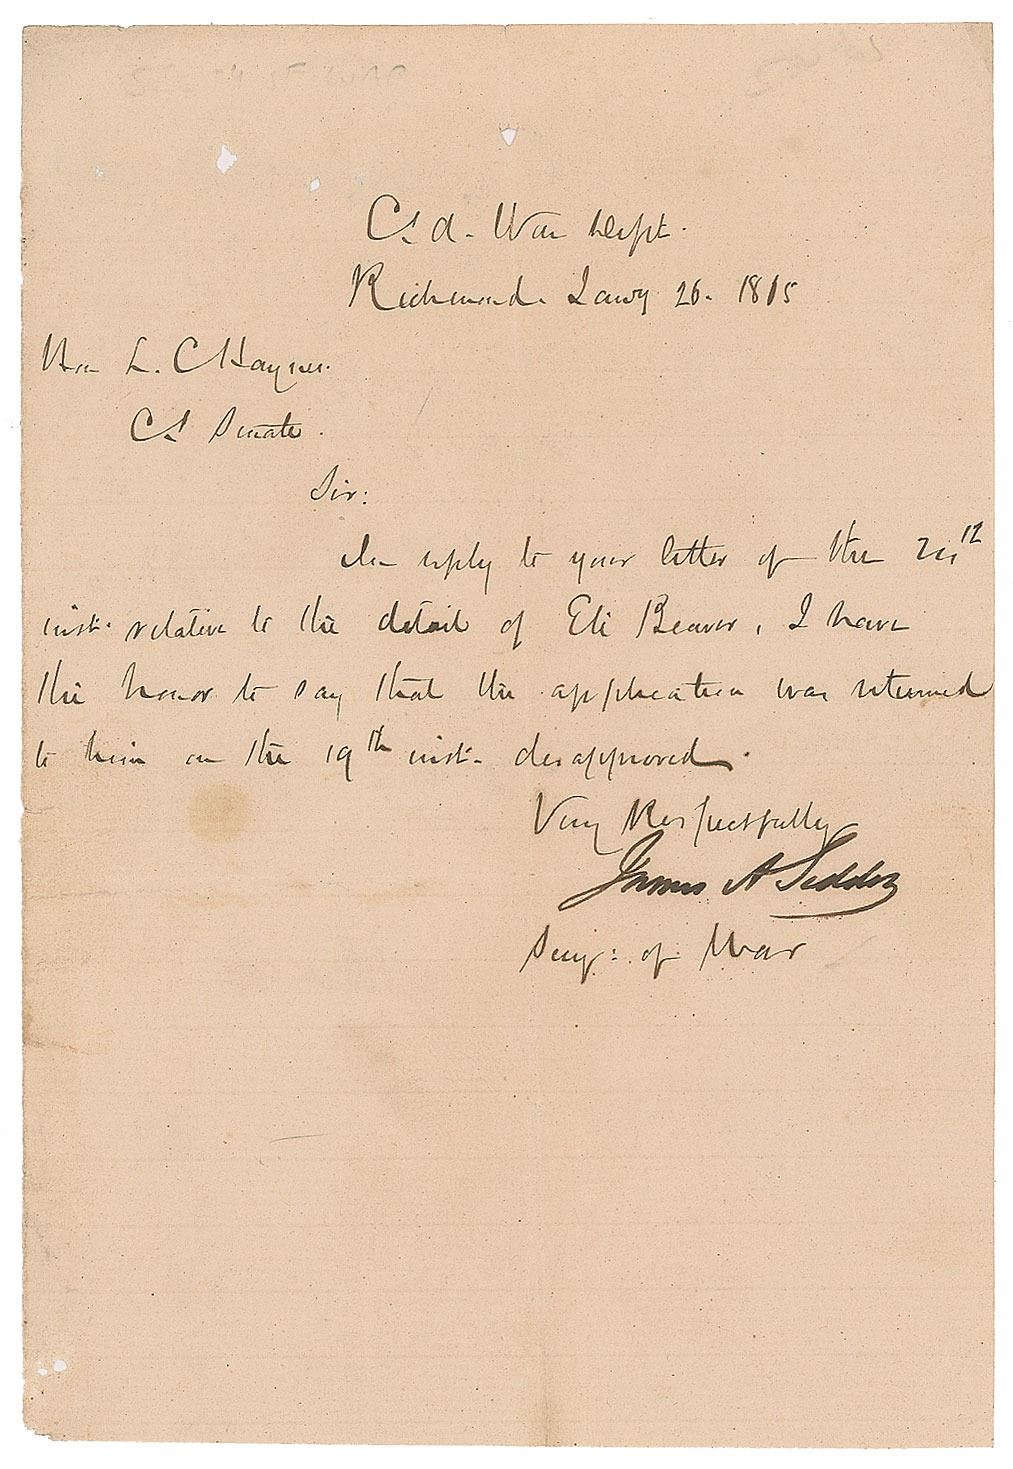 C.S.A. War Dept.
Richmond. Jany 26. 1865
Hon L. C Haynes.
C.S Senate.
Sir:
In reply to your letter of the
inst. relative to the detail of Eli Beaver, I have
the honor to say that the application was returned
to him on the 19th inst. disapproved.
Very Respectfully
James A Seddon
Secy: of War